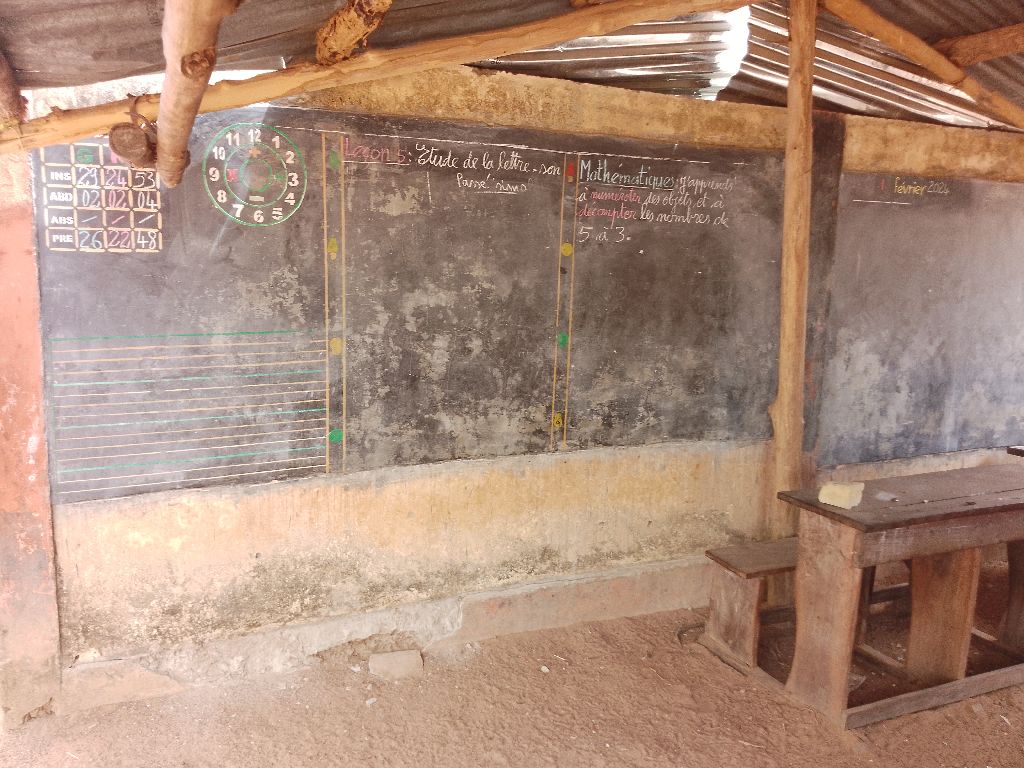 G
INS 29 24 53
ABD 02 02 04
ABS / / /
PRE 26 22 48
12
11 1
10 2
9 3
8 4
7 5
6
Leçon 5: Etude de la lettre-son
Mathématiques j'apprends
à numéroter des objets et à
décompter les nombres de
5 à 3.
Février 2024